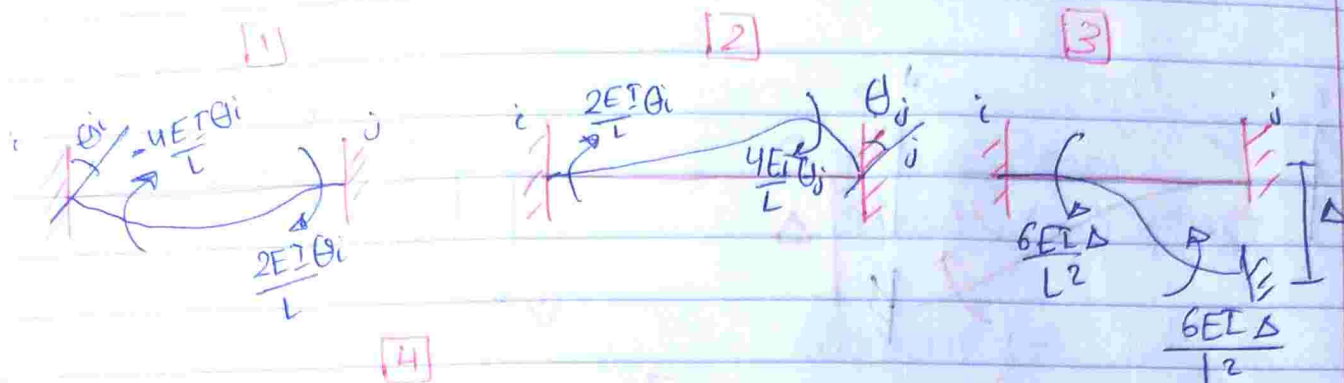 1
2
3
i
θi
4EIθi/L
j
2EIθi/L
i
2EIθi/L
4EI/L θj
θj
j
i
j
6EIΔ/L²
Δ
6EIΔ/L²
4